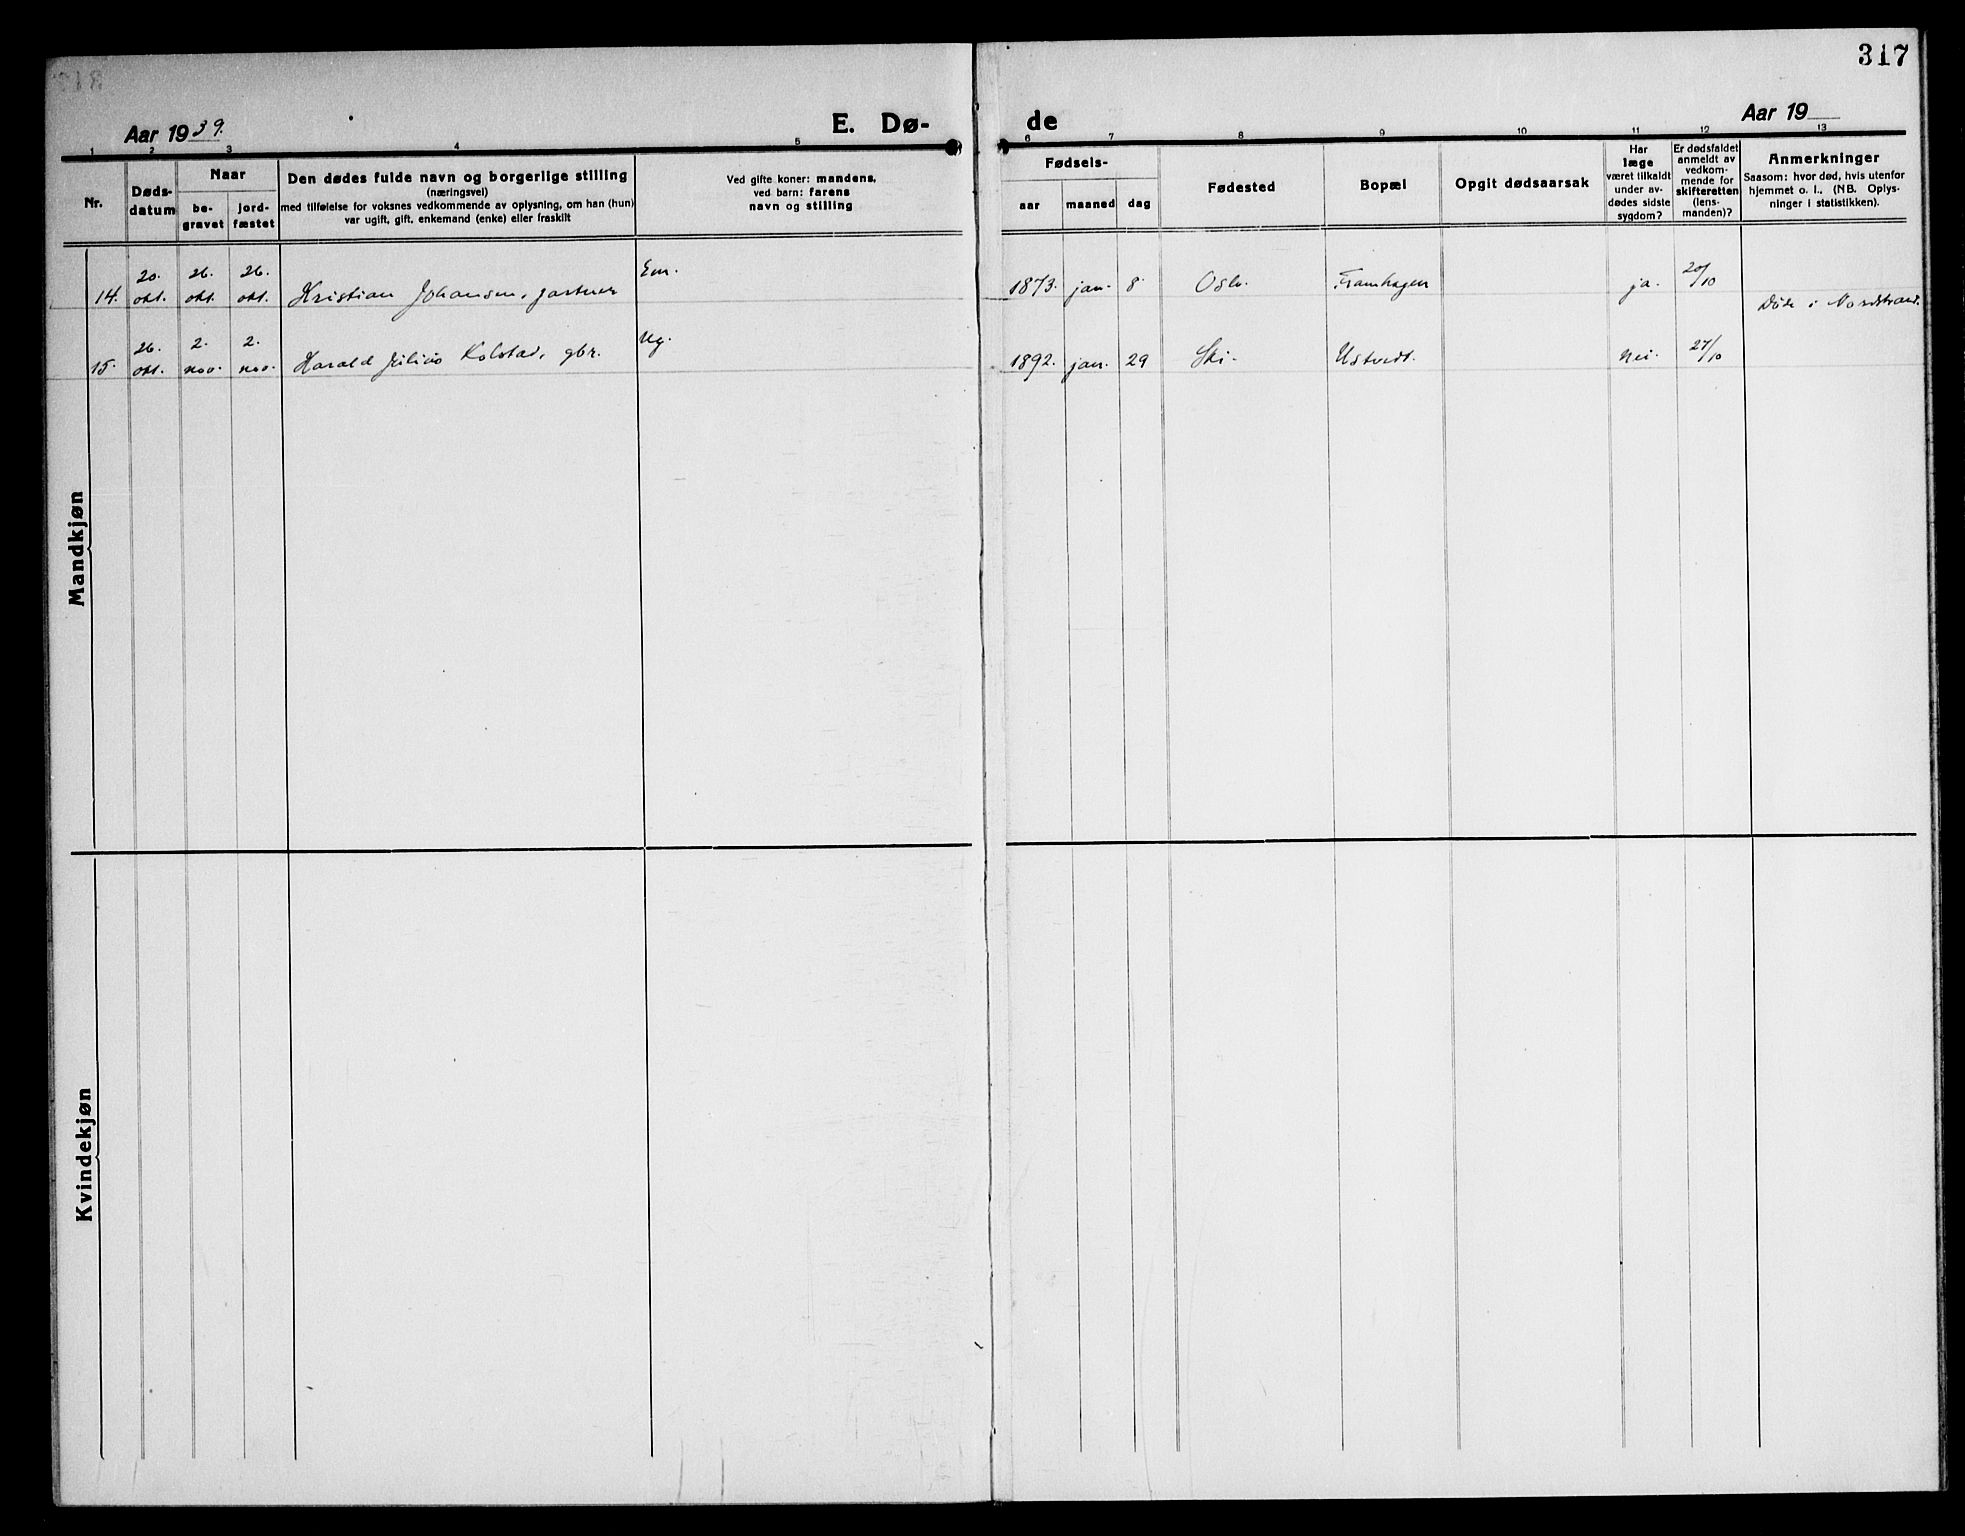 317
Aar 1939.
E. Dø-
de
Aar 19
1 2 3 4 5 6 7 8 9 10 11 12 13
Nr.
Døds-
datum
Naar
be-
gravet
jord-
fæstet
Den dødes fulde navn og borgerlige stilling
(næringsvei)
med tilføielse for voksnes vedkommende av oplysning, om han (hun)
var ugift, gift, enkemand (enke) eller fraskilt
Ved gifte koner: mandens,
ved barn: farens
navn og stilling
Fødsels-
aar maaned dag
Fødested
Bopæl
Opgit dødsaarsak
Har
læge
været tilkaldt
under av-
dødes sidste
sygdom?
Er dødsfaldet
anmeldt av
vedkom-
mende for
skifteretten
(lens-
manden)?
Anmerkninger
Saasom: hvor død, hvis utenfor
hjemmet o. l., (NB. Oplys-
ninger i statistikken).
14. 20. okt. 26. okt. 26. okt. Kristian Johansen, gartner Em. 1873. jan. 8. Oslo. Framhagen ja. 20/10 Døde i Nordstrand.
15. 26. okt. 2. nov. 2. nov. Harald Julius Kolstad, gbr. Ug. 1892. jan. 29 Ski. Ustvedt. nei. 27/10
Mandkjøn
Kvindekjøn